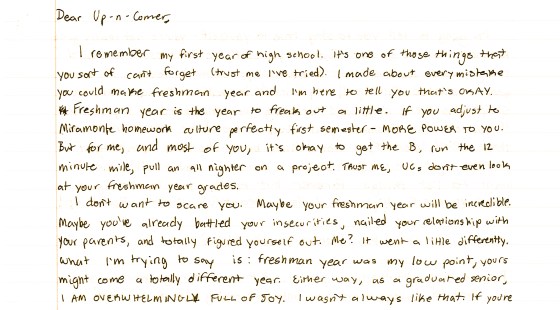 Dear Up-n-Comer,
I remember my first year of high school. It's one of those things that
you sort of can't forget (trust me I've tried). I made about every mistake
you could make freshman year and I'm here to tell you that's OKAY.
Freshman year is the year to freak out a little. If you adjust to
Miramonte homework culture perfectly first semester - MORE POWER TO YOU.
But for me, and most of you, it's okay to get the B, run the 12
minute mile, pull an all nighter on a project. Trust me, UCs don't even look
at your freshman year grades.
I don't want to scare you. Maybe your freshman year will be incredible.
Maybe you've already battled your insecurities, nailed your relationship with
your parents, and totally figured yourself out. Me? It went a little differently.
What I'm trying to say is: freshman year was my low point, yours
might come a totally different year. Either way, as a graduated senior,
I AM OVERWHELMINGLY FULL OF JOY. I wasn't always like that. If you're